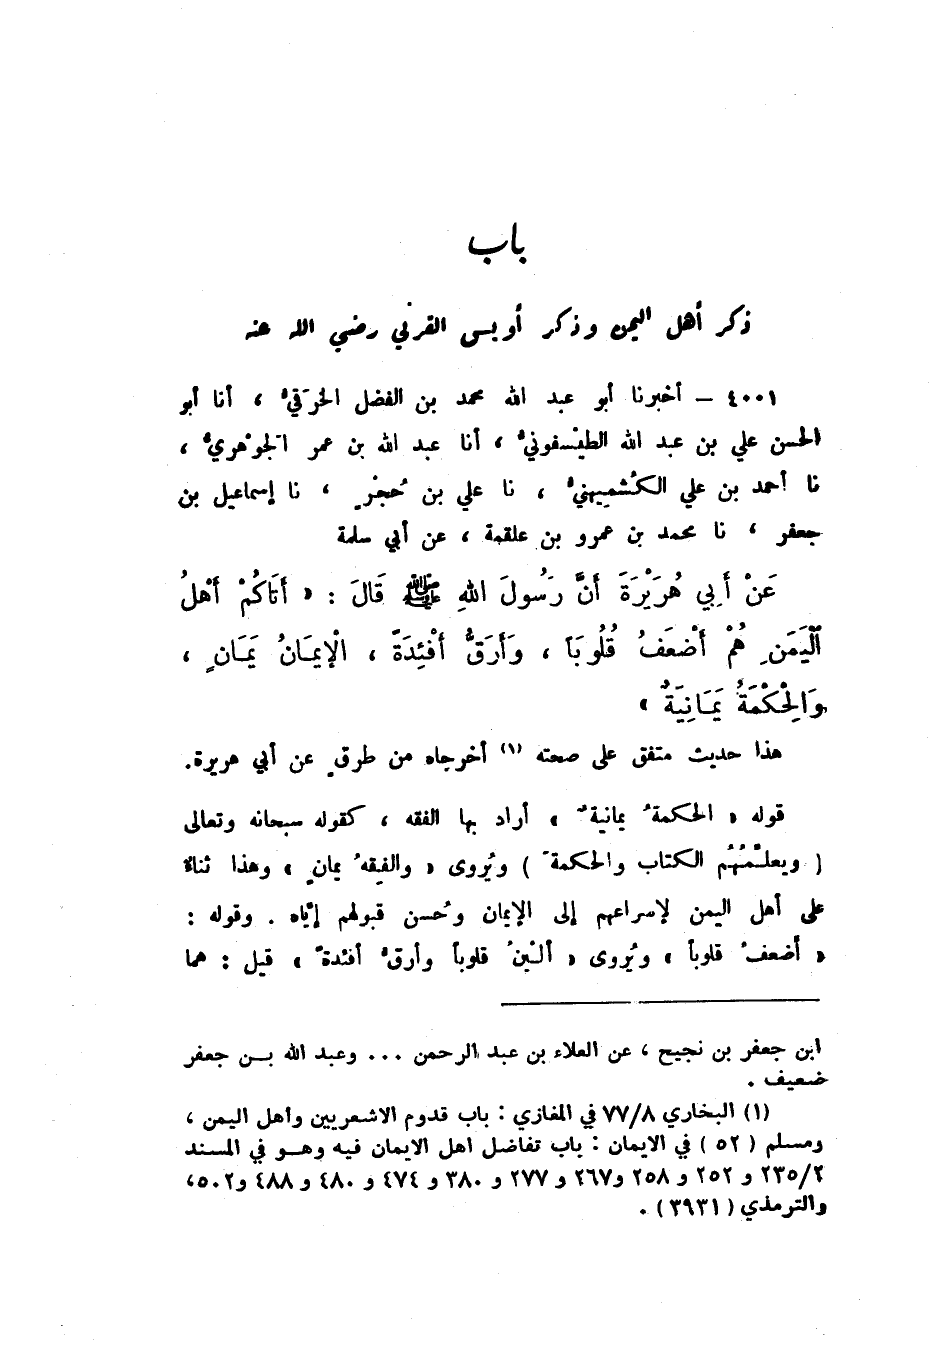 باب
ذكر أهل اليمن وذكر أويس القرني رضي الله عنه
٤٠٠١ – أخبرنا أبو عبد الله محمد بن الفضل الخرَقيُّ ، أنا أبو
الحسن علي بن عبد الله الطيْسفونيُّ ، أنا عبد الله بن عمر الجوْهريُّ ،
نا أحمد بن علي الكُشمِيهنيُّ ، نا علي بن حُجْرٍ ، نا إسماعيل بن
جعفر ، نا محمد بن عمرو بن علقمة ، عن أبي سلمة
عَنْ أَبِي هُرَيْرَةَ أَنَّ رَسُولَ اللهِ ﷺ قَالَ : « أَتَاكُمْ أَهْلُ
الْيَمَنِ هُمْ أَضْعَفُ قُلُوبَاً ، وَأَرَقُّ أَفْئِدَةً ، الْإيمَانُ يَمَانٍ ،
وَالْحِكْمَةُ يَمَانِيَةٌ »
هذا حديث متفق على صحته (١) أخرجاه من طرقٍ عن أبي هريرة.
قوله « الحكمةُ يمانيةٌ » أراد بها الفقه ، كقوله سبحانه وتعالى
( ويعلِّمُهُم الكتاب والحكمةَ ) ويُروى « والفِقهُ يمانٍ » وهذا ثناءٌ
على أهل اليمن لإسراعهم إلى الإيمان وحُسن قبولهم إيّاه . وقوله :
« أضعفُ قلوباً » ويُروى « ألْيَنُ قلوباً وأرقُّ أفئدةً » قيل : هما
ابن جعفر بن نجيح ، عن العلاء بن عبد الرحمن ... وعبد الله بن جعفر
ضعيف .
(١) البخاري ٧٧/٨ في المغازي : باب قدوم الاشعريين وأهل اليمن ،
ومسلم ( ٥٢ ) في الايمان : باب تفاضل اهل الايمان فيه وهو في المسند
٢٣٥/٢ و ٢٥٢ و ٢٥٨ و٢٦٧ و ٢٧٧ و ٣٨٠ و ٤٧٤ و ٤٨٠ و ٤٨٨ و٥٠٢،
والترمذي ( ٣٩٣١ ) .